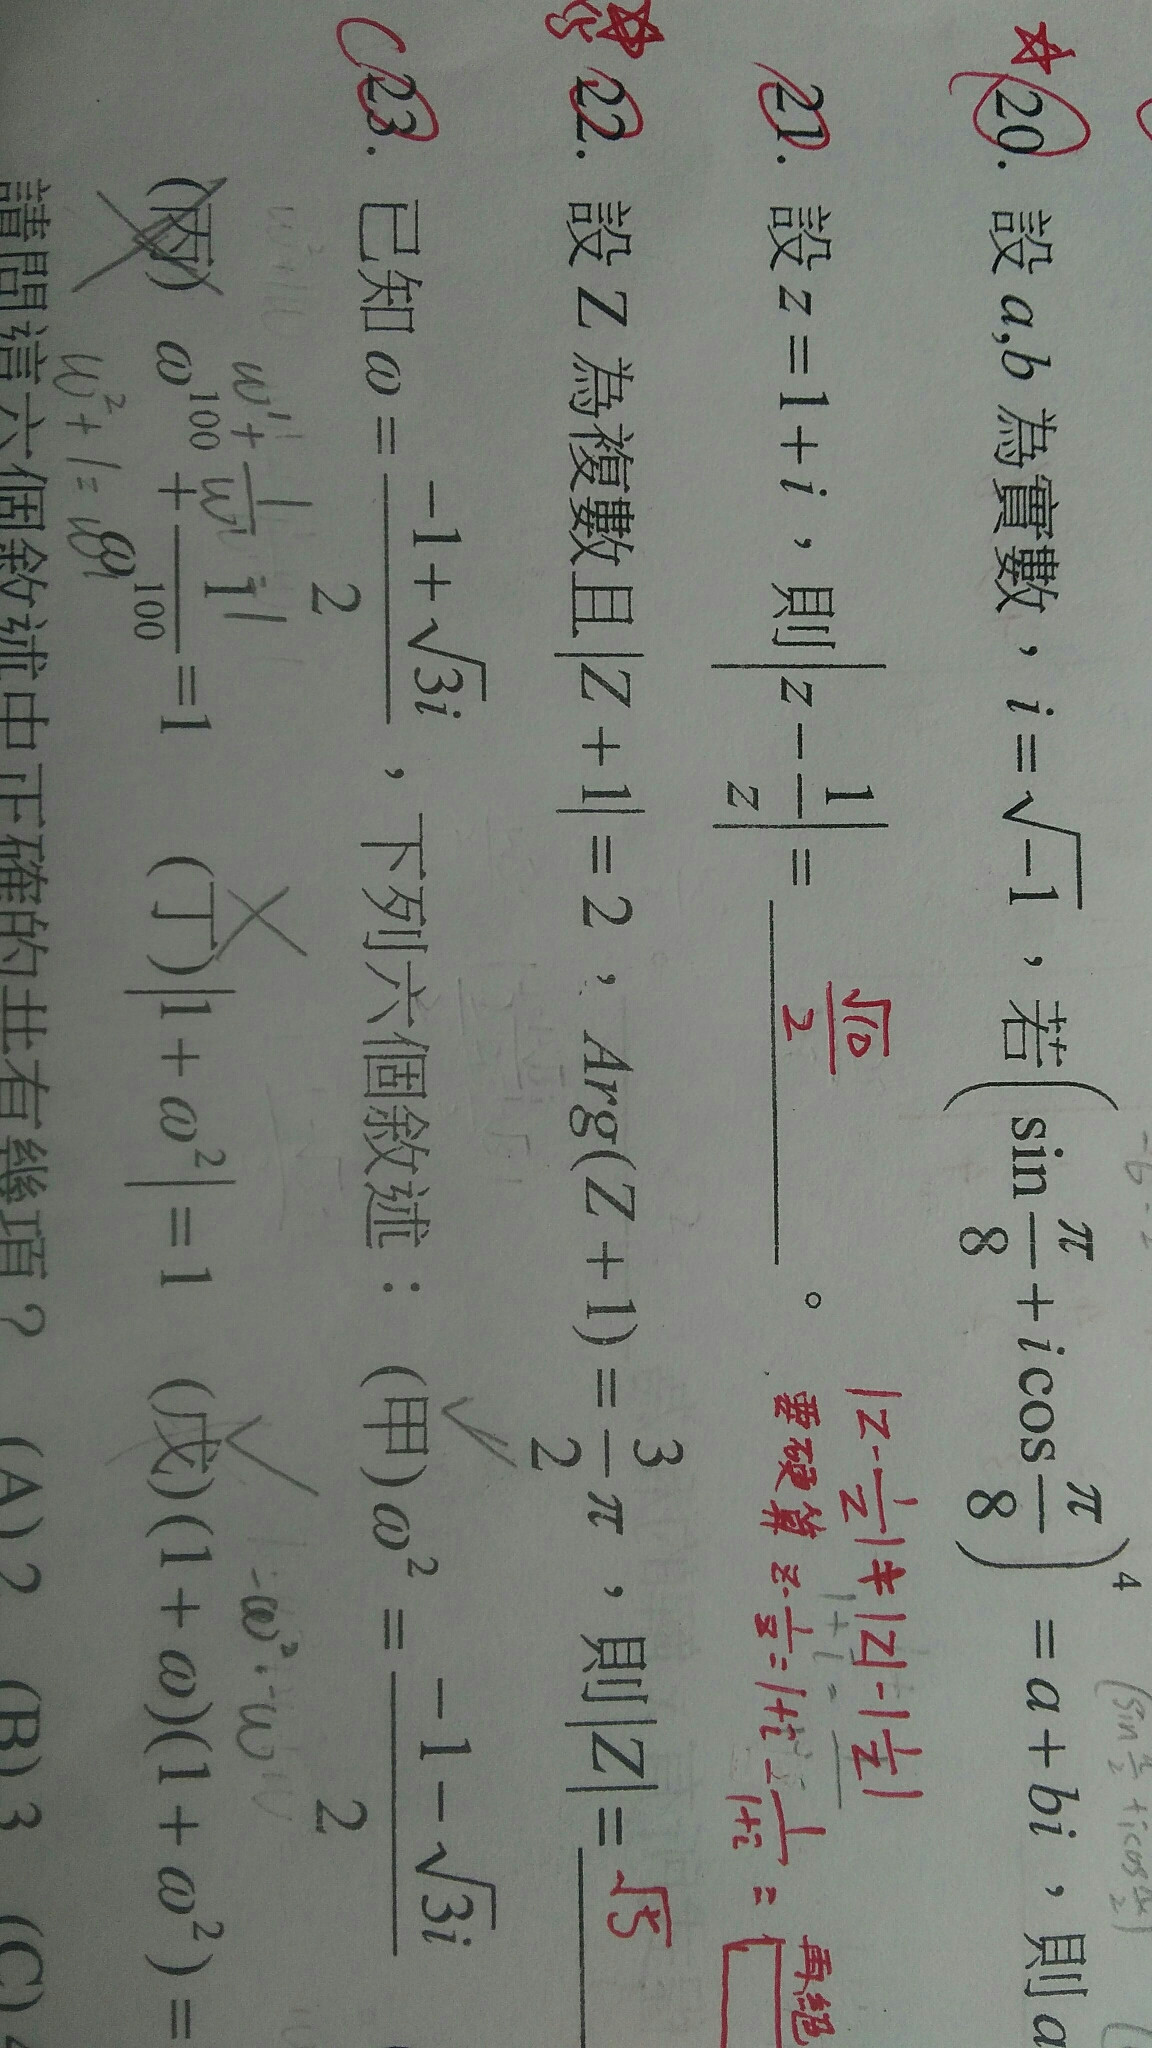 20. 設 a,b 為實數，i=√-1，若(sin π/8 + i cos π/8)^4 = a+bi，則 a
21. 設 z=1+i，則|z-1/z|= √10/2 。
|z-1/z|≠|z|-|1/z|
要硬算 z-1/z=1+i-1/(1+i)=
再絕
22. 設 Z 為複數且|Z+1|=2，Arg(Z+1)=3/2 π，則|Z|= √5
23. 已知 ω=(-1+√3i)/2，下列六個敘述：(甲)ω²=(-1-√3i)/2
(丙) ω^100+1/ω^100=1 (丁)|1+ω²|=1 (戊)(1+ω)(1+ω²)=
請問這六個敘述中正確的共有幾項？ (A)2 (B)3 (C)